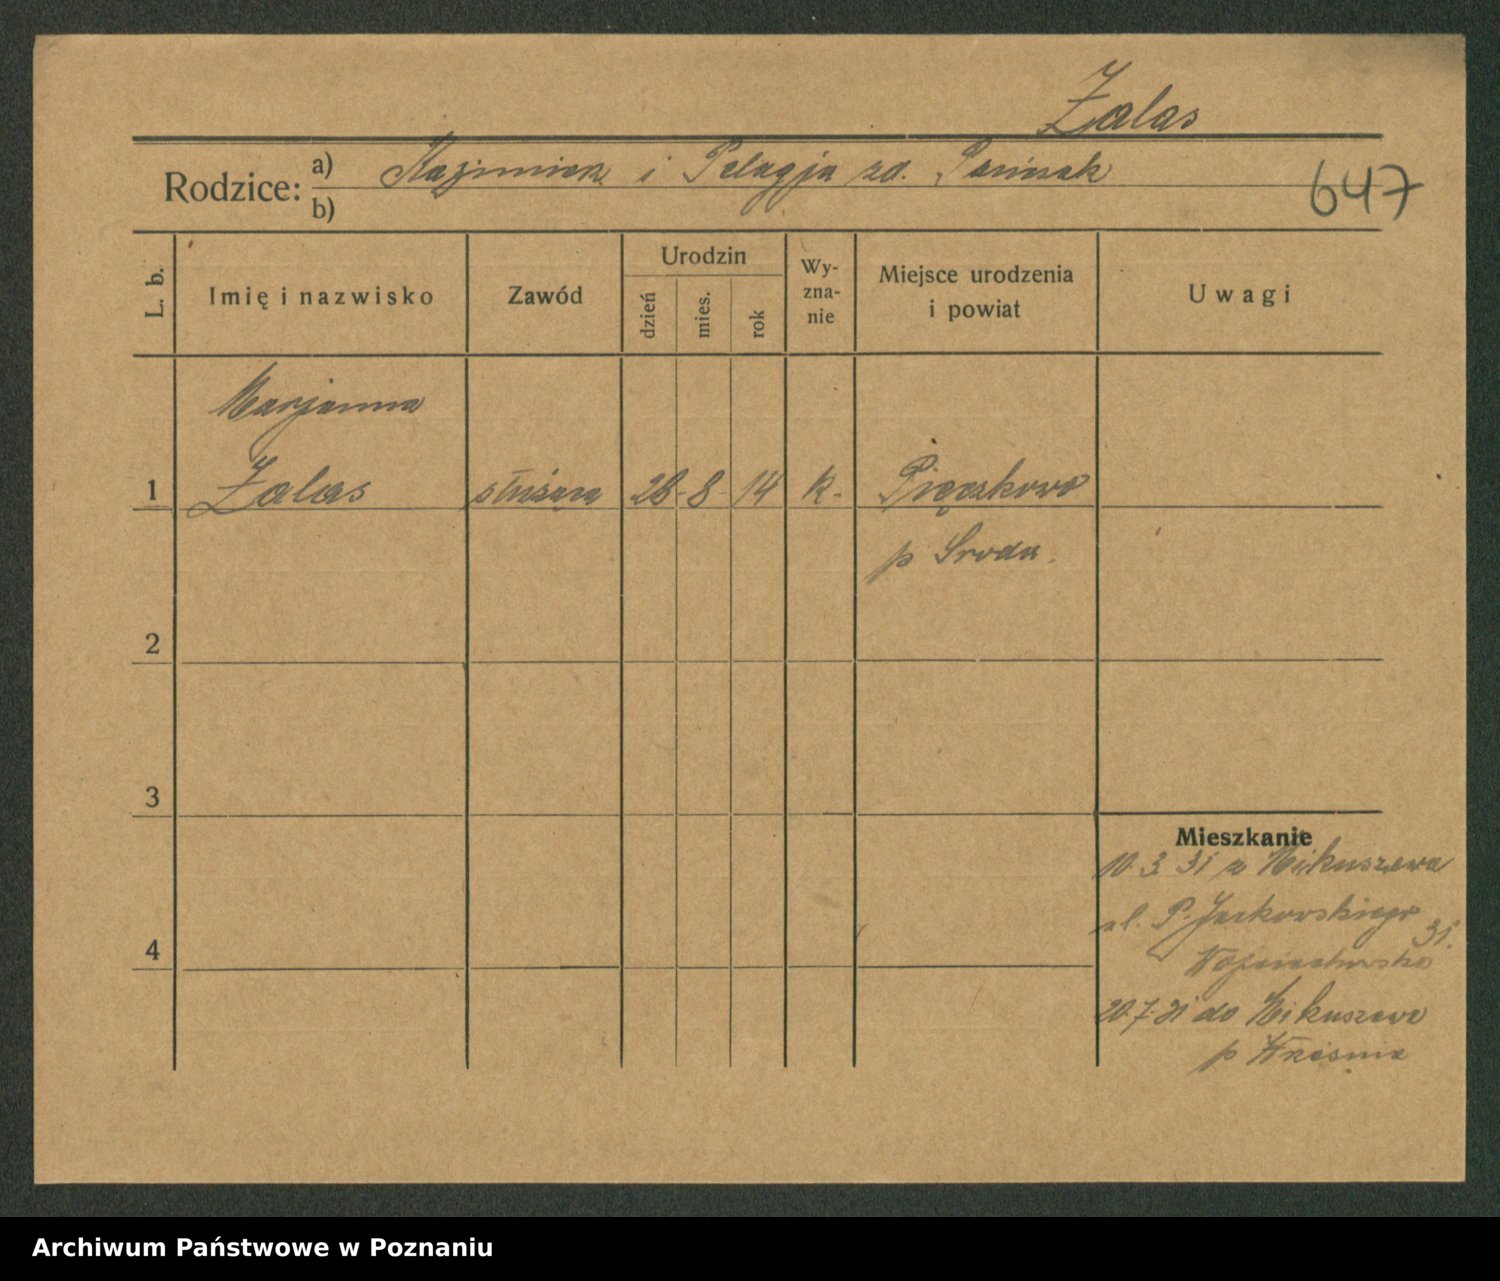 Zalas
Rodzice: a) Kazimierz i Pelagja zd.
b)
647
L. b.
Imię i nazwisko
Zawód
Urodzin
dzień
mies.
rok
Wy-
zna-
nie
Miejsce urodzenia
i powiat
Uwagi
Marjanna
1 Zalas służąca 28 - 8 - 14 k. Pięczkowo
p Sroda.
2
3
Mieszkanie
10. 3. 31 z Mikuszewa
ul. P. Jackowskiego 31.
4
20. 7. 31 do Mikuszewa
p Września
Archiwum Państwowe w Poznaniu